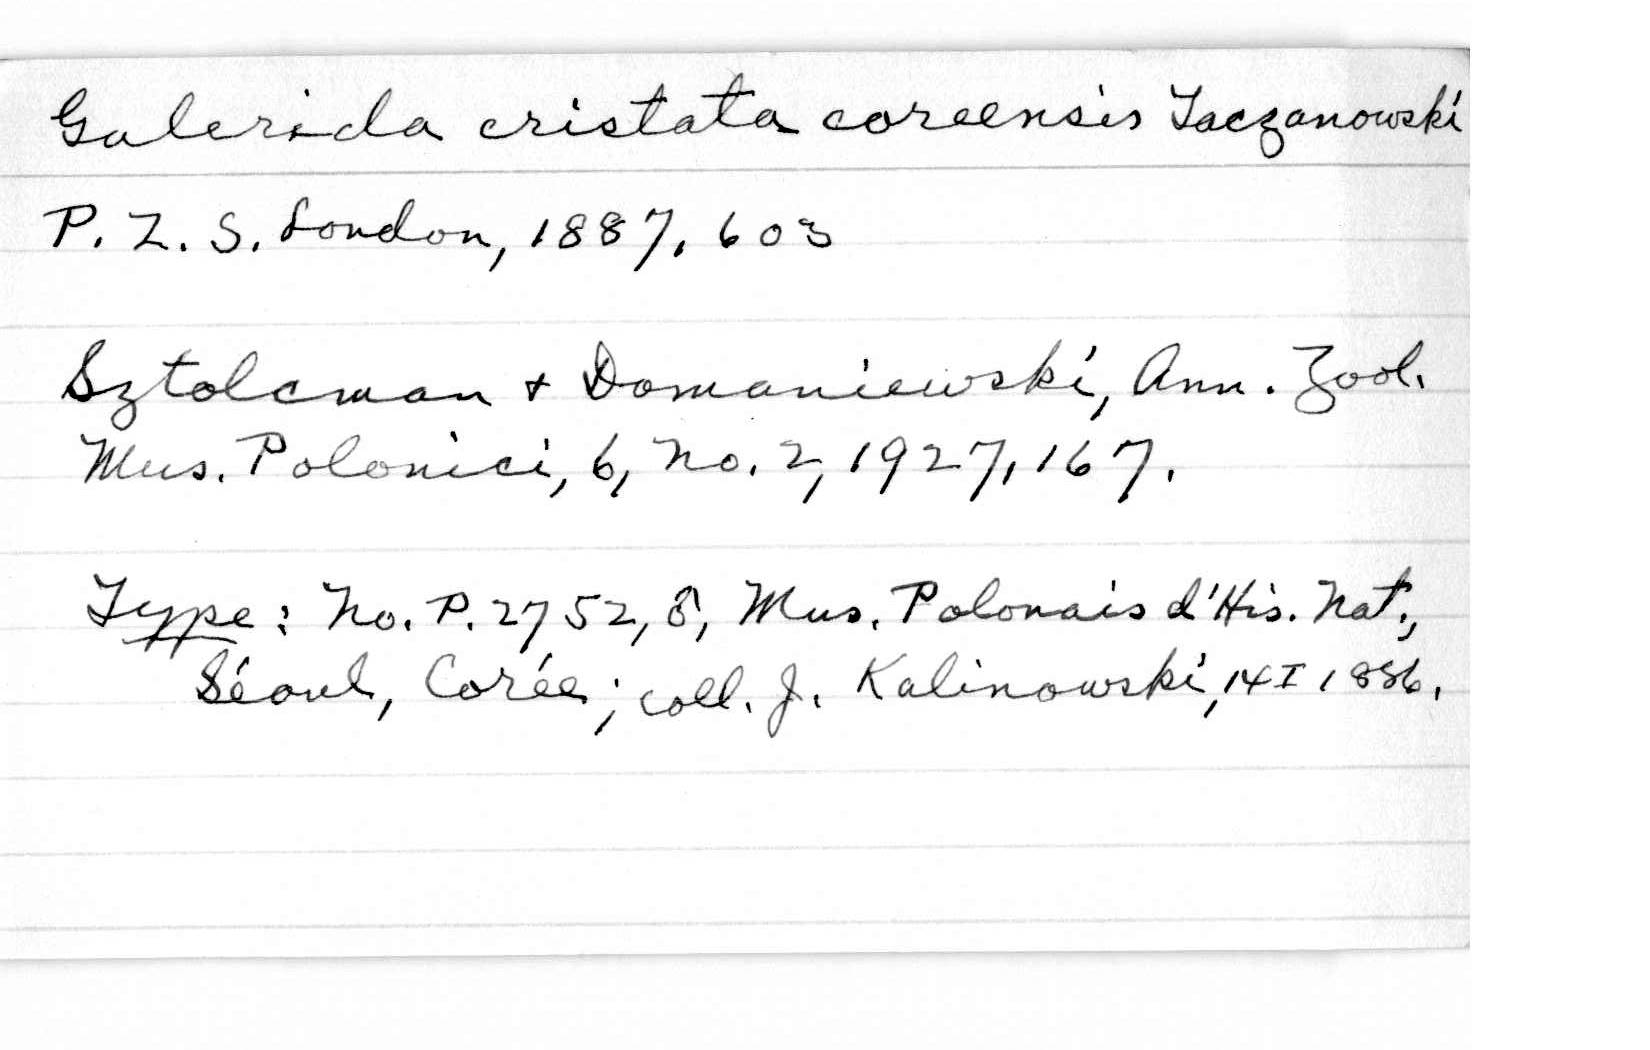 Galerida cristata coreensis Taczanowski
P. Z. S. London, 1887, 603
Sztolcman + Domaniewski, Ann. Zool.
Mus. Polonici, 6, No. 2, 1927, 167.
Type: No. P. 2752, ♂, Mus. Polonais d'His. Nat.,
Séoul, Corée; coll. J. Kalinowski, 14 I 1886.